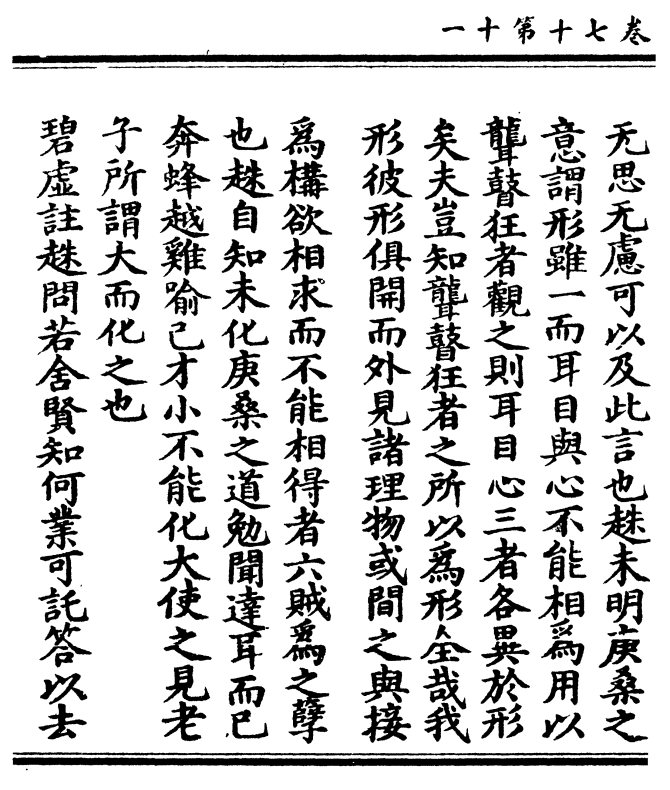 卷七十第十一
无思无慮可以及此言也趎未明庚桑之
意謂形雖一而耳目與心不能相爲用以
聾瞽狂者觀之則耳目心三者各異於形
矣夫豈知聾瞽狂者之所以爲形全哉我
形彼形俱開而外見諸理物或間之與接
爲構欲相求而不能相得者六賊爲之孽
也趎自知未化庚桑之道勉聞達耳而已
奔蜂越雞喻己才小不能化大使之見老
子所謂大而化之也
碧虛註趎問若舍賢知何業可託答以去